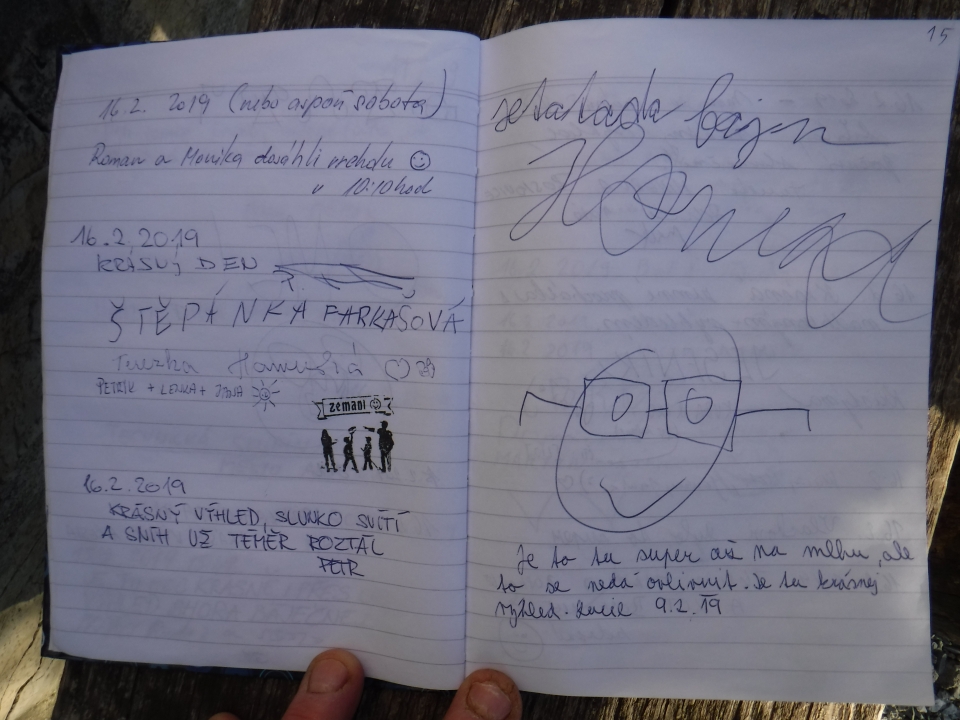 16.2. 2019 (nebo aspoň sobota)
Roman a Monika dosáhli vrcholu
v 10:10hod
16.2.2019
KRÁSNÝ DEN
ŠTĚPÁNKA FARKAŠOVÁ
Terezka
PETRIK + LENKA + JANA
zemani
16.2.2019
KRÁSNÝ VÝHLED, SLUNKO SVÍTÍ
A SNÍH UŽ TÉMĚŘ ROZTÁL
PETR
15
Je to tu super až na mlhu, ale
to se nedá ovlivnit. Je tu krásnej
výhled. Lucie 9.2.19